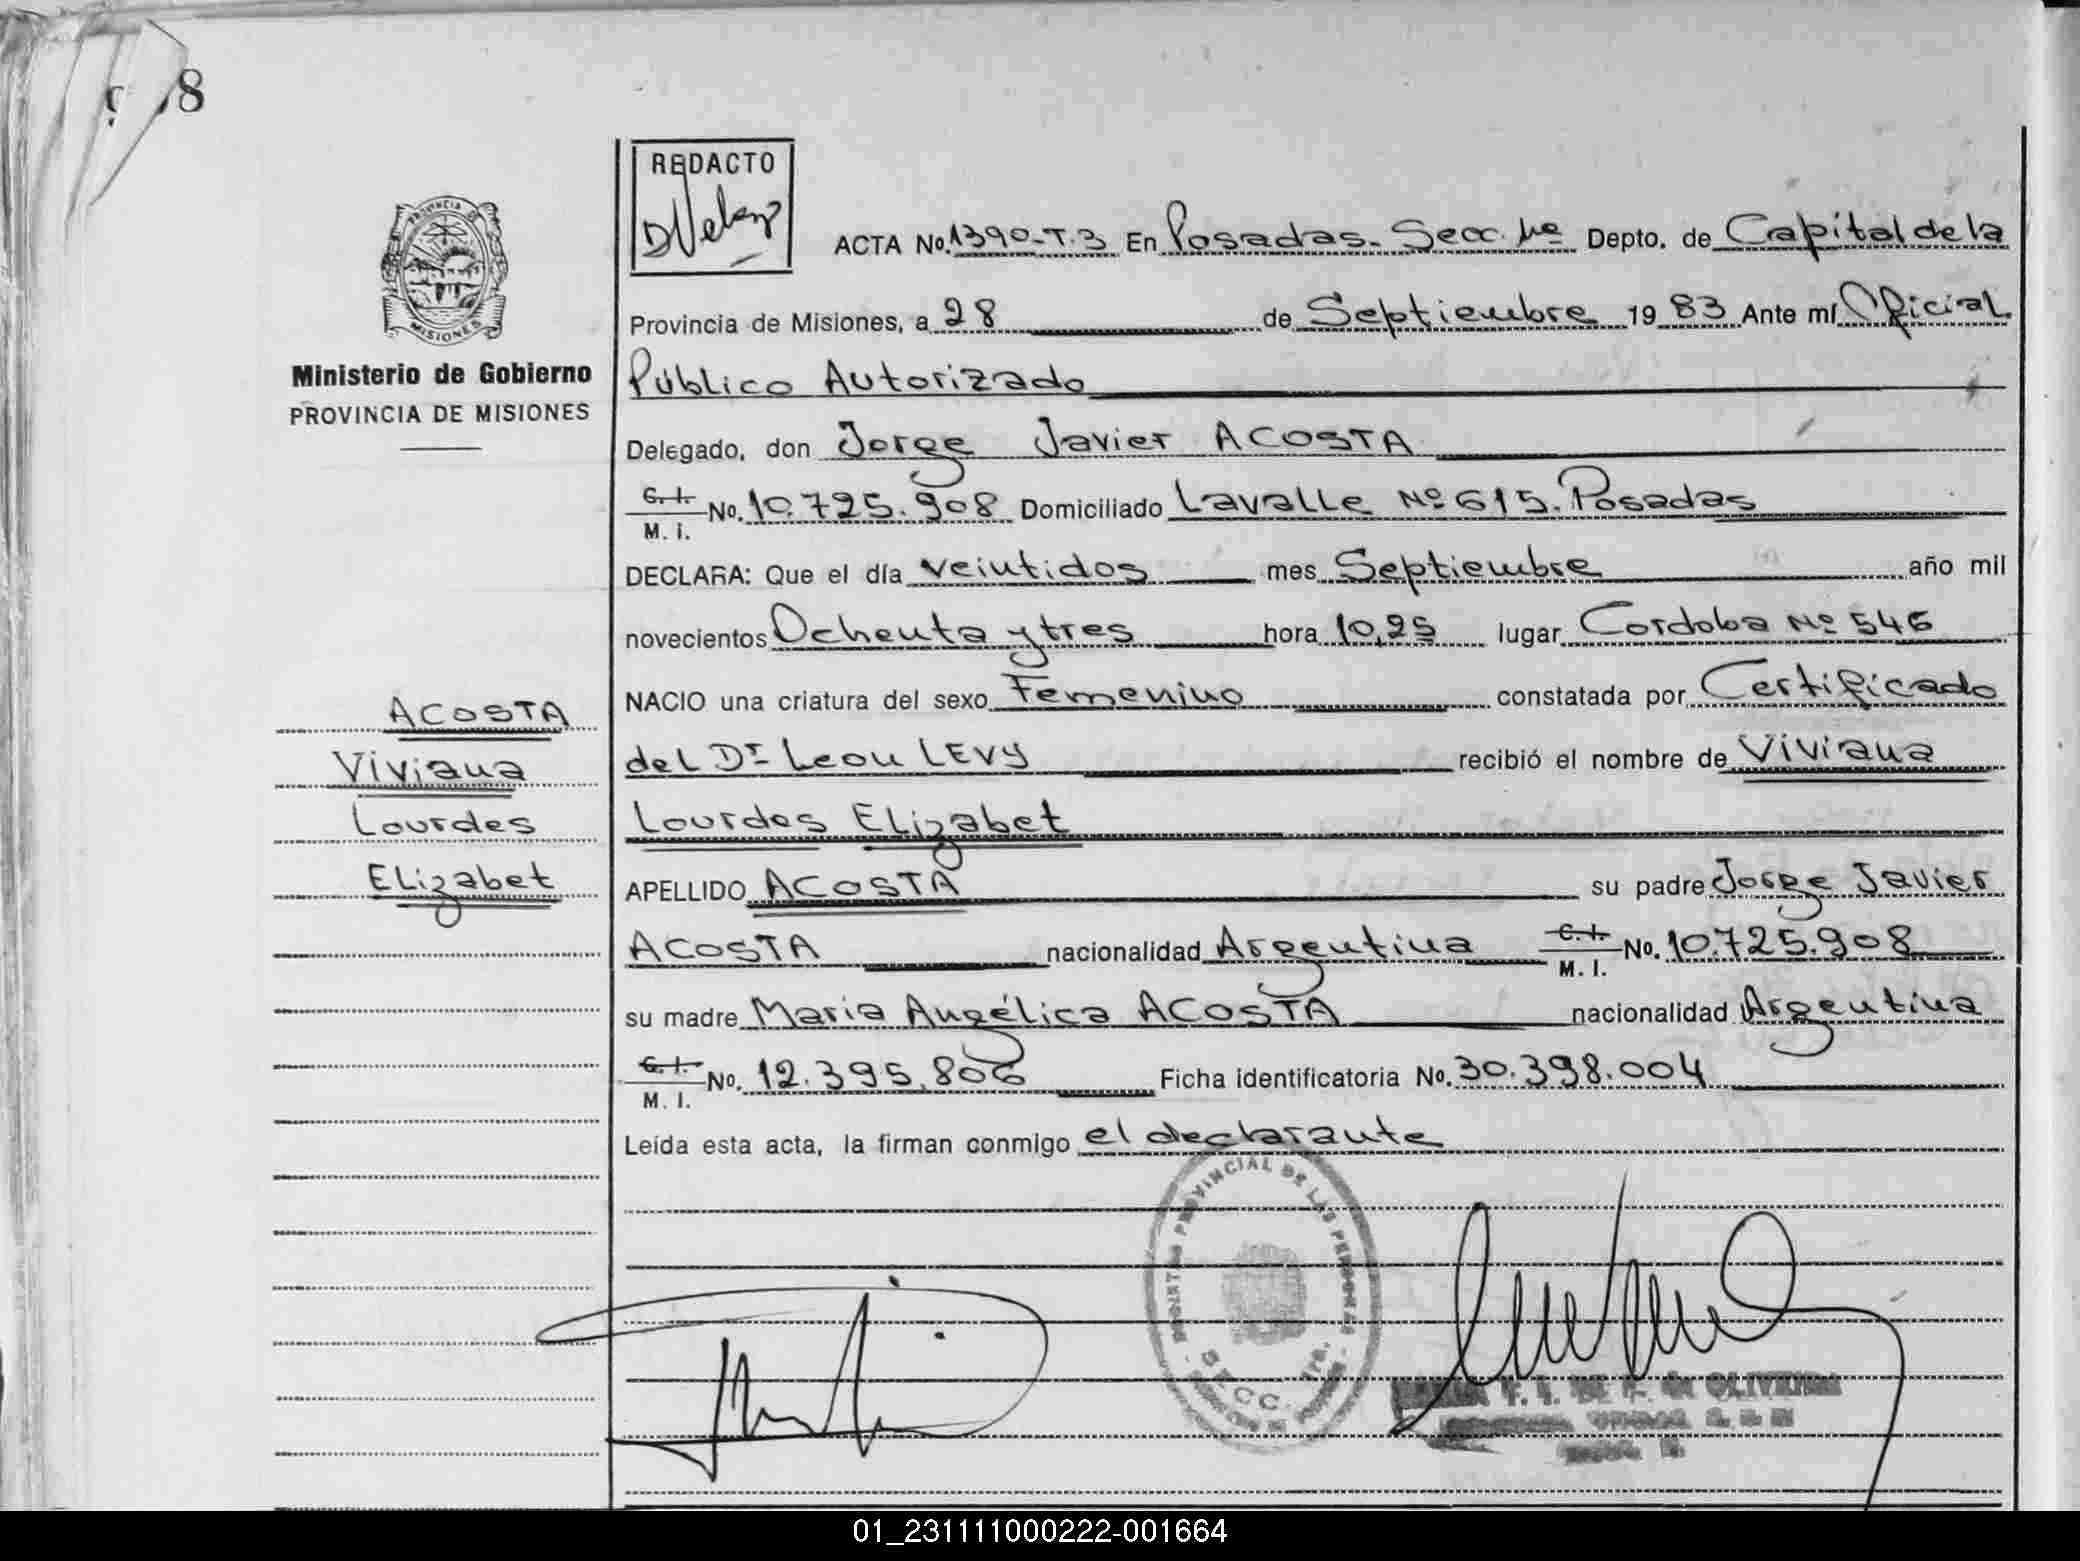 8
REDACTO
DVelazp
ACTA No. 1390-T.3 En Posadas. Secc. 1º Depto. de Capital de la
PROVINCIA DE
MISIONES
Provincia de Misiones, a 28 de Septiembre 19 83 Ante mí Oficial
Ministerio de Gobierno
PROVINCIA DE MISIONES
Público Autorizado
Delegado, don Jorge Javier ACOSTA
C. I.
M. I. No. 10.725.908 Domiciliado Lavalle Nº 615. Posadas
DECLARA: Que el día veintidos mes Septiembre año mil
novecientos Ochenta y tres hora 10,25 lugar Cordoba Nº 546
NACIO una criatura del sexo Femenino constatada por Certificado
del Dr Leon LEVY recibió el nombre de Viviana
Lourdes Elizabet
APELLIDO ACOSTA su padre Jorge Javier
ACOSTA nacionalidad Argentina C. I. M. I. No. 10.725.908
su madre Maria Angélica ACOSTA nacionalidad Argentina
C. I. M. I. No. 12.395.806 Ficha identificatoria No. 30.398.004
Leída esta acta, la firman conmigo el declarante
ACOSTA
Viviana
Lourdes
Elizabet
PROVINCIAL DE LAS PERSONAS
SECC. 1ra.
DE OLIVEIRA
01_231111000222-001664